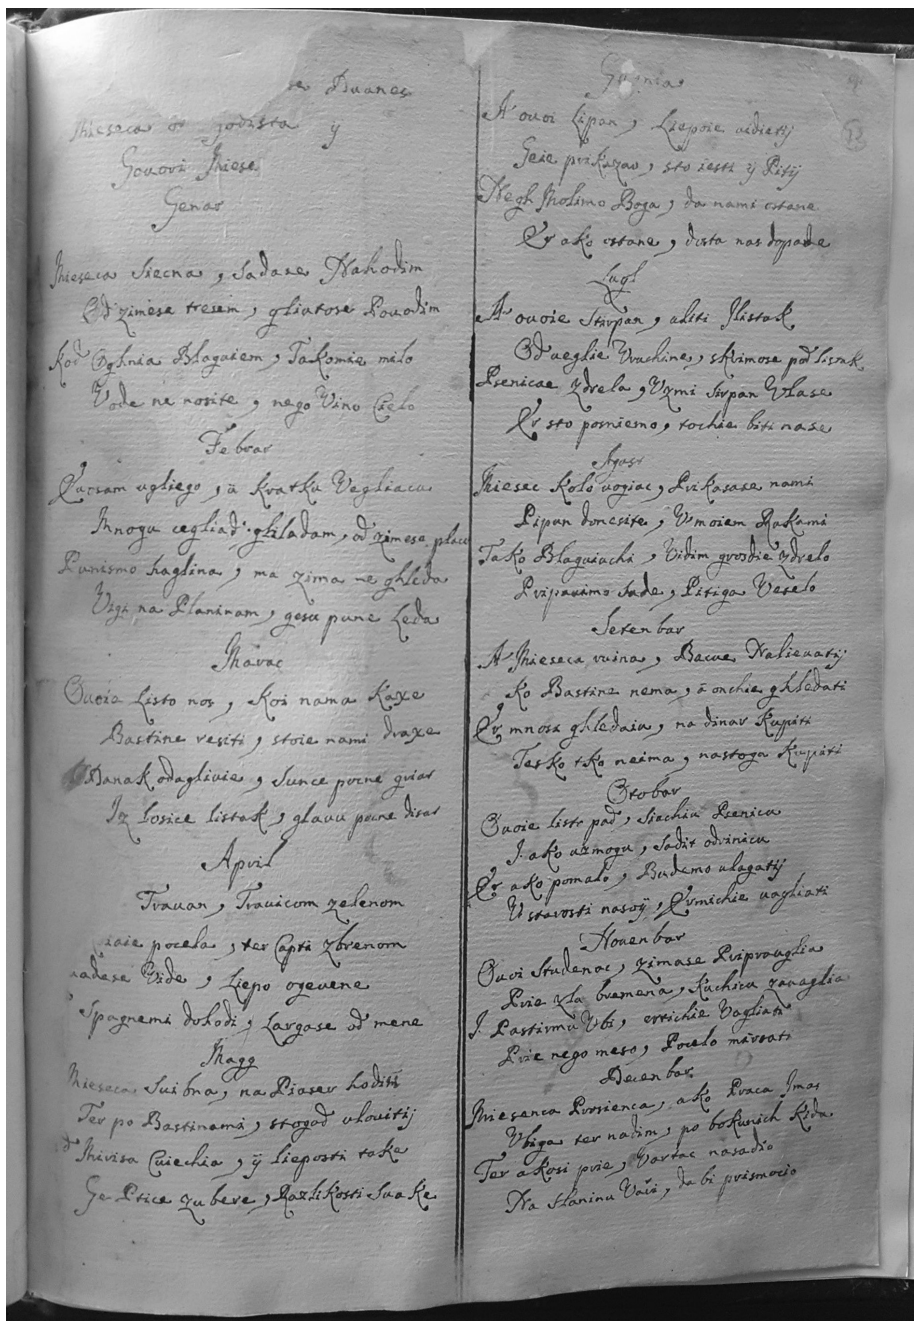 Duanes
Mieseca godista ij
Govori Miese
Genar
Mieseca Siecna, Sadase Nahodim
Od zimese tresem, gliutose Povodim
Kod Oghnia Blaguiem, Takomie milo
Vode ne nosite, nego Vino Cielo
Febrar
Evosam vgliego, ü kratku Vegliacu
Mnogu cegliad ghiladam, od zimese placu
Punismo haglina, ma zima ne ghleda
Vigi na Planinam, gesu pune Leda
Marac
Ovoia Listo nos, Koi nama Kaxe
Bastine resiti, stoie nami draxe
Danak odaglivie, Sunce pocne griat
Iz Losice listak, glavu pocne disat
April
Travan, Travicom zelenom
pocela, ter Capti zbrenom
Vide, Liepo ogevene
Spagnemi dohodi, Largase od mene
Magg
Mieseca Suibna, na Piaser hodist
Ter po Bastinami, stogod vlovitij
Mirisa Cuiechia, ij lieposti take
Ge Ptice zubere, Razlikosti Suake
Giugnia
A ovoi Lipan, Liepoie vidietij
Geie prikazao, sto iesti ij Pitij
Negh Molimo Boga, da nami ostane
Er ako ostane, dosta nas dopade
Lugl
A ovoie Sarpan, uliti Mistak
Od veglie Vruchine, skrimose pod Lisnak
Psenicae zdrela, Uzmi Sarpan Vlase
Er sto posniemo, tochie biti nase
Agust
Miesec Kolovogiac, Prikasase nami
Pipun donesite, V moiem Rakami
Tako Blaguiuchi, Vidim grosdie zdrelo
Pripavimo Sade, Pitiga Veselo
Setenbar
A Mieseca ruina, Bacue Nalievatij
Ko Bastine nema, ä onchie ghledati
Er mnosi ghledaiu, na dinar Kupiti
Tesko tko neima, nastoga Kupiti
Otobar
Ovoie listopad, Siachiu Psenicu
I. ako uzmogu, Sadit odvinicu
Er ako pomalo, Budemo ulagatij
U starosti nasoij, Ermichie vagliati
Novenbar
Ovoi Studenac, zimase Pripravglia
Prie zla bremena, Kuchicu zavaglia
I. Pastirmu Ubi, ertichie Vagliati
Prie nego meso, Pocelo marsati
Decenbar
Miesenca Prosienca, ako Praca Imas
Ubiga ter nadim, po bokunich Kida
Ter akosi prie, Vartac nasadio
Na Slaninu Vari, da bi prismocio